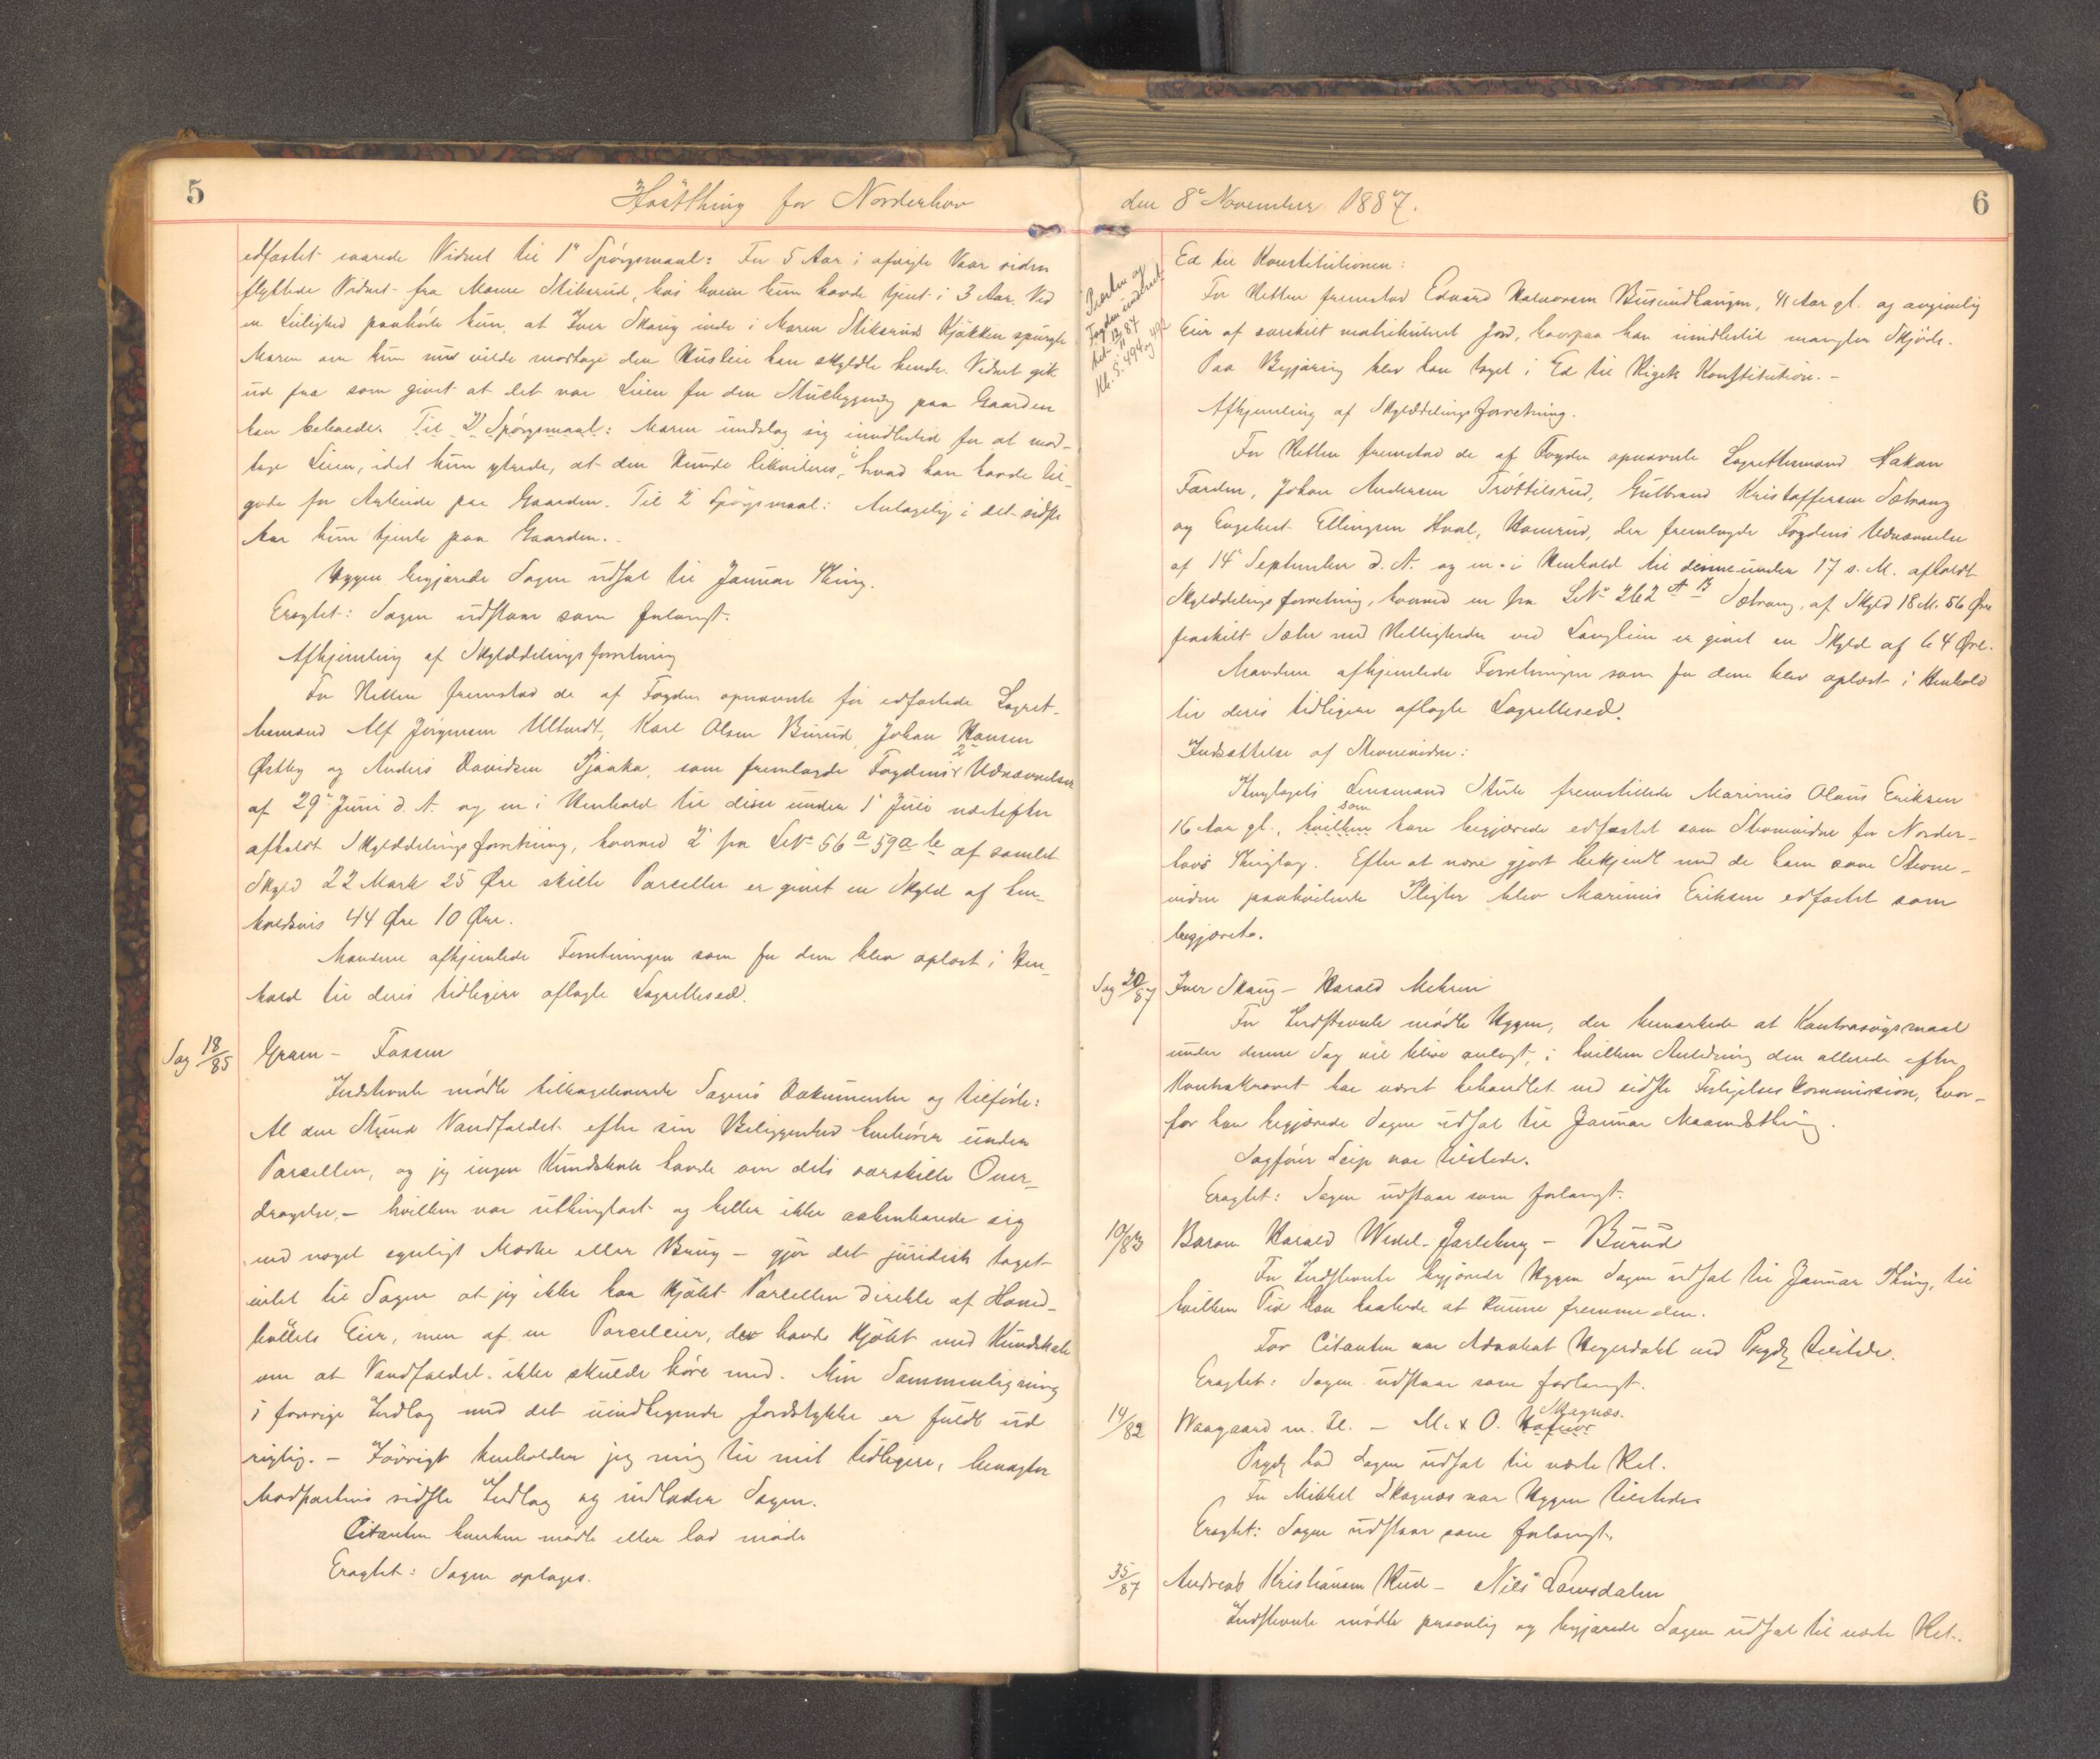 5
Høstthing for Norderhov
edfæstet svarede Vidnet til 1ste Spørgsmaal: For 5 Aar i afvigte Vaar siden
flyttede Vidnet fra Maren Stiksrud, hos hvem hun havde tjent i 3 Aar. Ved
en Leilighed paahørte hun, at Iver Skaug inde i Maren Stiksruds Kjøkken spurgte
Maren om hun nu vilde modtage den Husleie han skyldte hende. Vidnet gik
ud fra som givet at det var Leien for den Stuebygning paa Gaarden
han beboede. Til 2 Spørgsmaal: Maren undslog sig imidlertid for at mod-
tage Leien, idet hun ytrede, at den kunde likvideres i hvad han havde til-
gode for Arbeide paa Gaarden. Til 2 Spørgsmaal: Antagelig i det sidste
Aar hun tjente paa Gaarden.
Hygen begjærede Sagen udsat til Januar Thing.
Eragtet: Sagen udstaar som forlangt.
Afhjemling af Skylddelingsforretning
For Retten fremstod de af Fogden opnævnte før edfæstede Lagret-
tesmænd Alf Jørgensen Ultvedt, Karl Olsen Burud, Johan Hansen
Østby og Anders Davidsen Pjaaka, som fremlagde Fogdens 2 Udnævnelser
af 29 Juni d. A. og en i Henhold til disse under 1 Juli næstefter
afholdt Skylddelingsforretning, hvorved 2 fra LNo 56 a 59 a b af samlet
Skyld 22 Mark 25 Øre skilte Parceller er givet en Skyld af hen-
holdsvis 44 Øre 10 Øre.
Mændene afhjemlede Forretningen som for dem blev oplæst i Hen-
hold til deres tidligere aflagte Lagrettesed.
Sag 18/85
Gram - Fossen
Indstevnte mødte tilbageleverede Sagens Dokumenter og tilførte:
At den Stund Vandfaldet efter sin Beliggenhed henhører under
Parcellen, og jeg ingen Kundskab havde om dets særskilte Over-
dragelse, - hvilken var utinglæst og heller ikke aabenbarede sig
ved noget synligt Mærke eller Brug - gjør det juridisk taget
intet til Sagen at jeg ikke har kjøbt Parcellen direkte af Hoved-
bølets Eier, men af en Parceleier, der havde kjøbt med Kundskab
om at Vandfaldet ikke skulde høre med. Min Sammenligning
i forrige Indlæg med det mindligende Jordstykke er fuldt ud
rigtig. - Iøvrigt henholder jeg mig til mit tidligere, benægter
Modpartens sidste Indlæg og indlader Sagen.
Citanten hverken mødte eller lod møde
Eragtet: Sagen optages.
6
den 8de November 1887.
Ed til Konstitutionen:
For Retten fremstod Edvard Halvorsen Busundhaugen, 41 Aar gl. og angivelig
Eier af særskilt matrikuleret Jord, hvorpaa han imidlertid mangler Skjøde.
Paa Begjæring blev han taget i Ed til Rigets Konstitution. -
Afhjemling af Skylddelingsforretning.
For Retten fremstod de af Fogden opnævnte Lagrettesmænd Hakon
Færden, Johan Andersen Trøttelsrud, Gulbrand Kristoffersen Sætrang
og Engebret Ellingsen Hval, Haverud, der fremlagde Fogdens Udnævnelse
af 14 September d. A. og en i Henhold til denne under 17 s. M. afholdt
Skylddelingsforretning, hvorved en fra LNo 262 A B Sætrang, af Skyld 18 M. 56 Øre
fraskilt Sæter med Rettigheder ved Langlien er givet en Skyld af 64 Øre.
Mændene afhjemlede Forretningen som for dem blev oplæst i Henhold
til deres tidligere aflagte Lagrettesed.
Indsættelse af Stevnevidne:
Thinglagets Lensmand Stub fremstillede Marinius Olaus Eriksen
16 Aar gl., hvilken som han begjærede edfæstet som Stevnevidne for Norder-
hovs Thinglag. Efter at være gjort bekjendt med de ham som Stevne-
vidne paahvilende Pligter blev Marinius Eriksen edfæstet som
begjæret.
Sag 20/87
Iver Skaug - Harald Mehren
For Indstevnte mødte Hygen, der bemærkede at Kontrasøgsmaal
under denne Sag vil blive anlagt, i hvilken Anledning den allerede efter
Kontrakravet har været behandlet ved sidste Forligelses Kommission, hvor-
for han begjærede Sagen udsat til Januar Maanedsthing.
Sagfører Leip var tilstede.
Eragtet: Sagen udstaar som forlangt.
10/83
Baron Harald Wedel-Jarlsberg - Burud
For Indstevnte begjærede Hygen Sagen udsat til Januar Thing, til
hvilken Tid han haabede at kunne fremme den.
For Citanten var Advokat Heyerdahl ved Prydz tilstede.
Eragtet: Sagen udstaar som forlangt.
14/82
Waagaard m. Fl. - M. & O. Hafnor Skagnæs.
Prydz lod Sagen udsat til næste Ret.
For Mikkel Skagnæs var Hygen tilstede
Eragtet: Sagen udstaar som forlangt.
35/87
Andreas Kristiansen Rud - Nils Lamsdalen
Indstevnte mødte personlig og begjærede Sagen udsat til næste Ret.